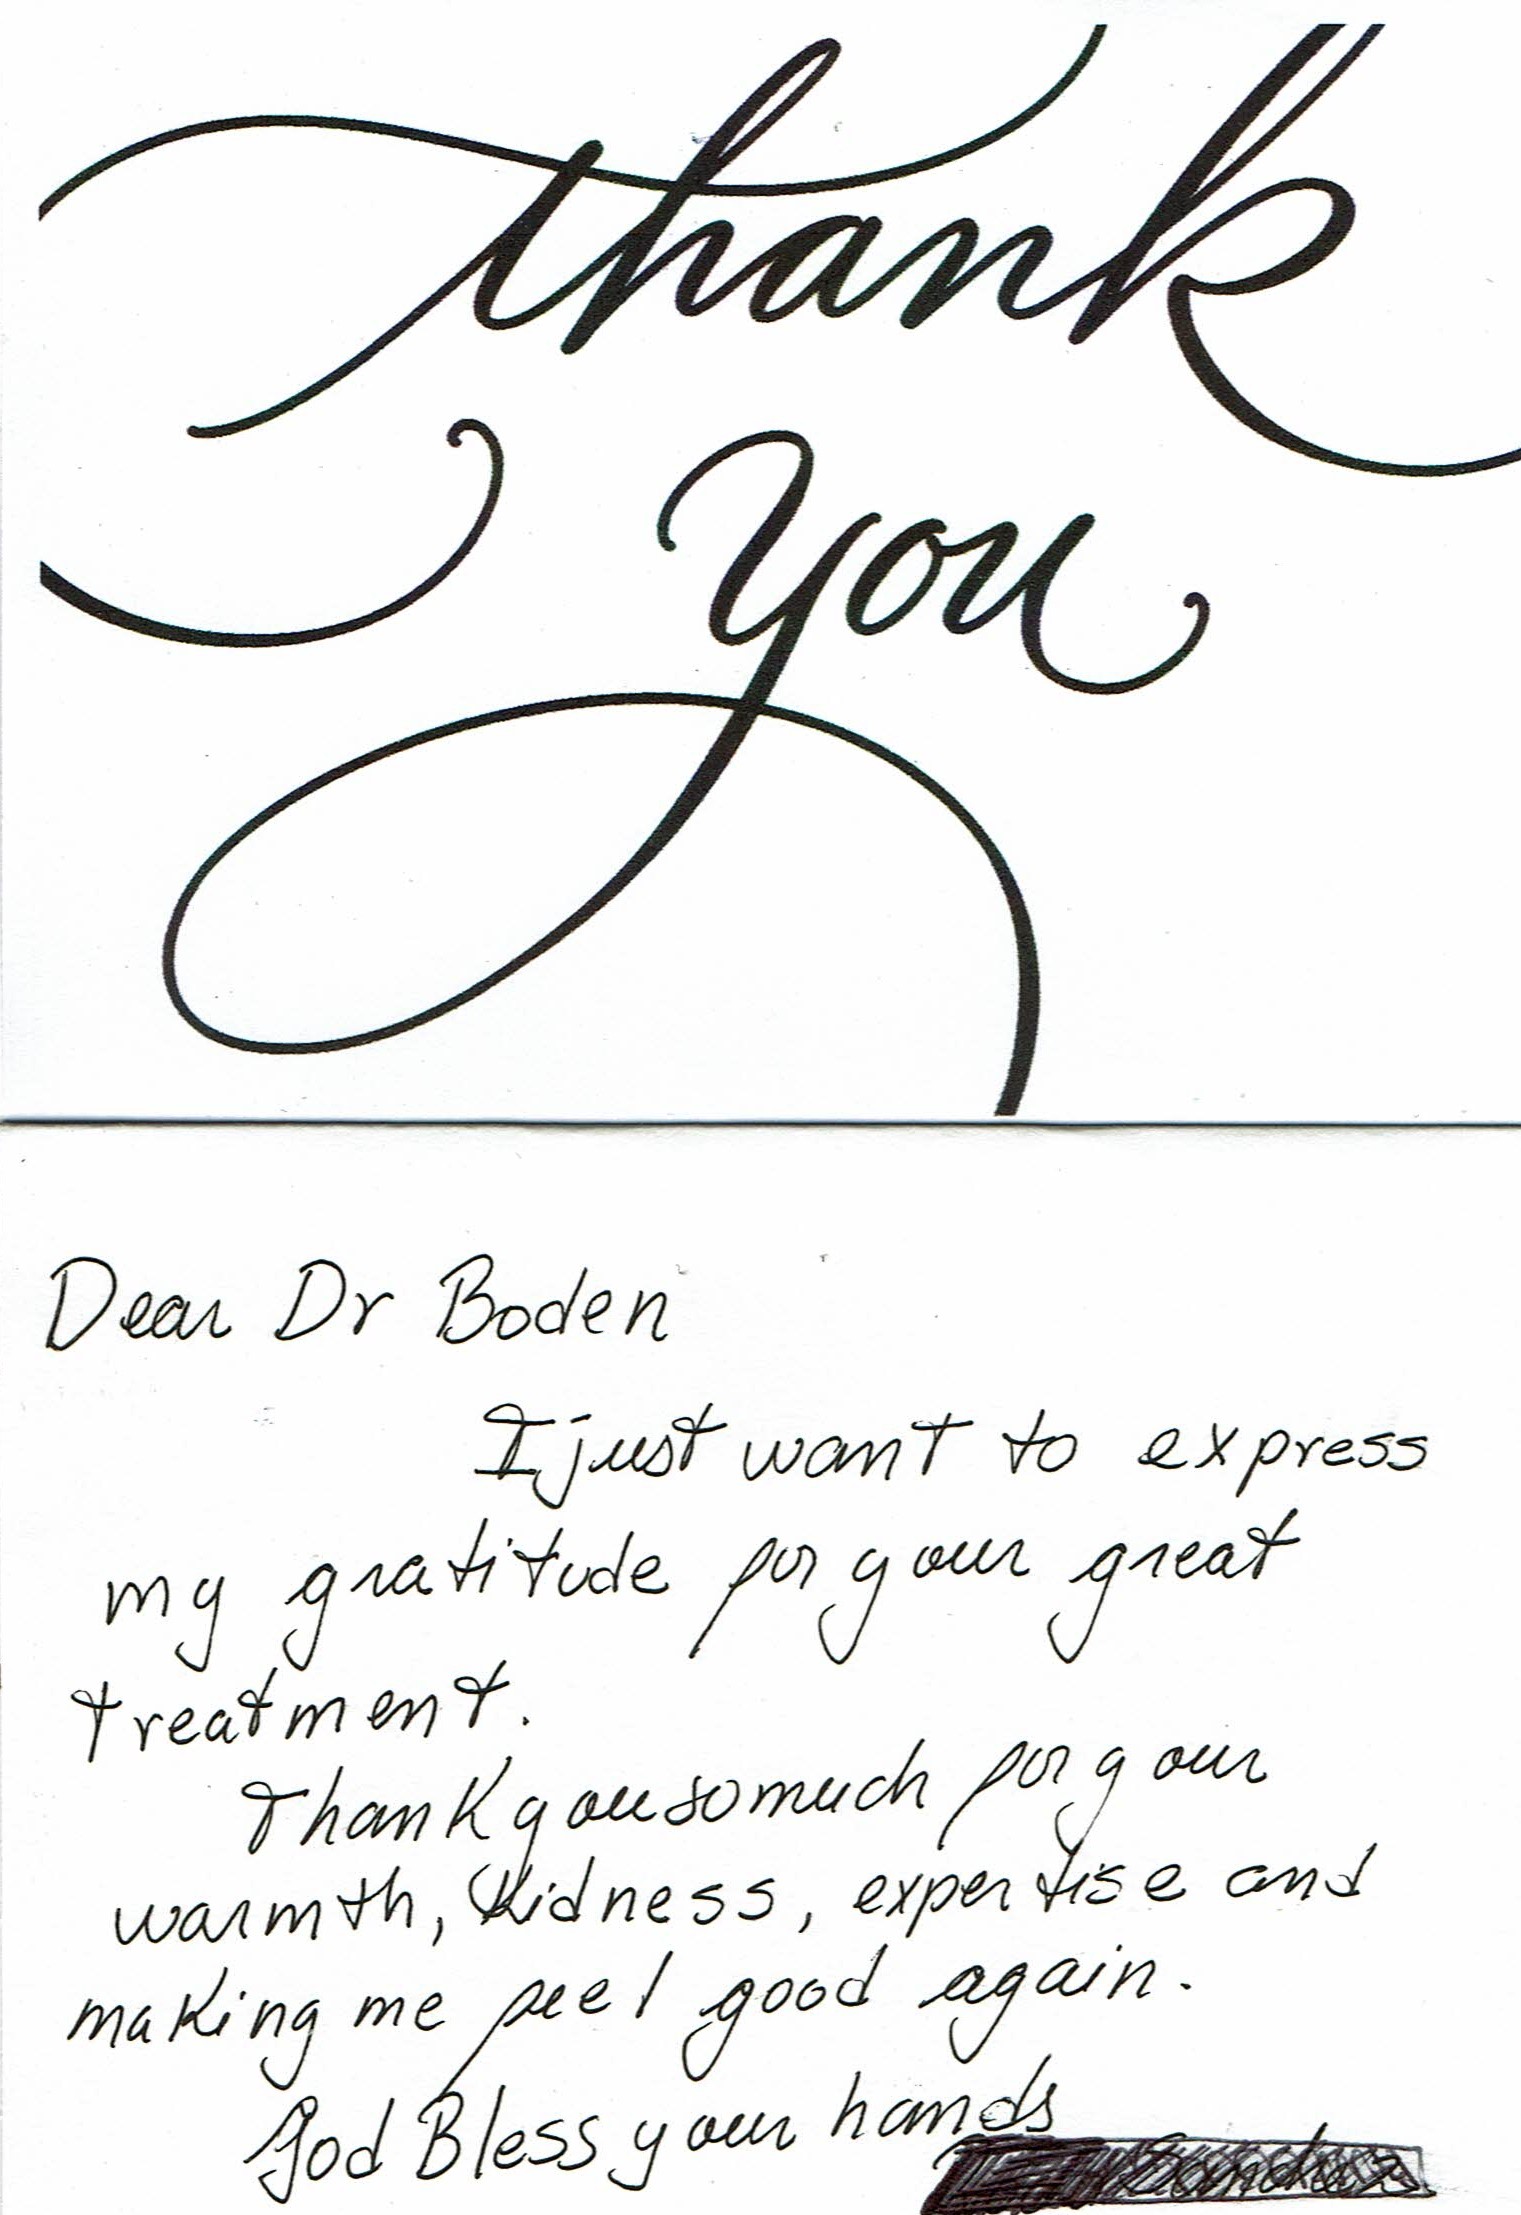 thank
you
Dear Dr Boden
I just want to express
my gratitude for your great
treatment.
Thank you so much for your
warmth, Kidness, expertise and
making me feel good again.
God Bless your hands